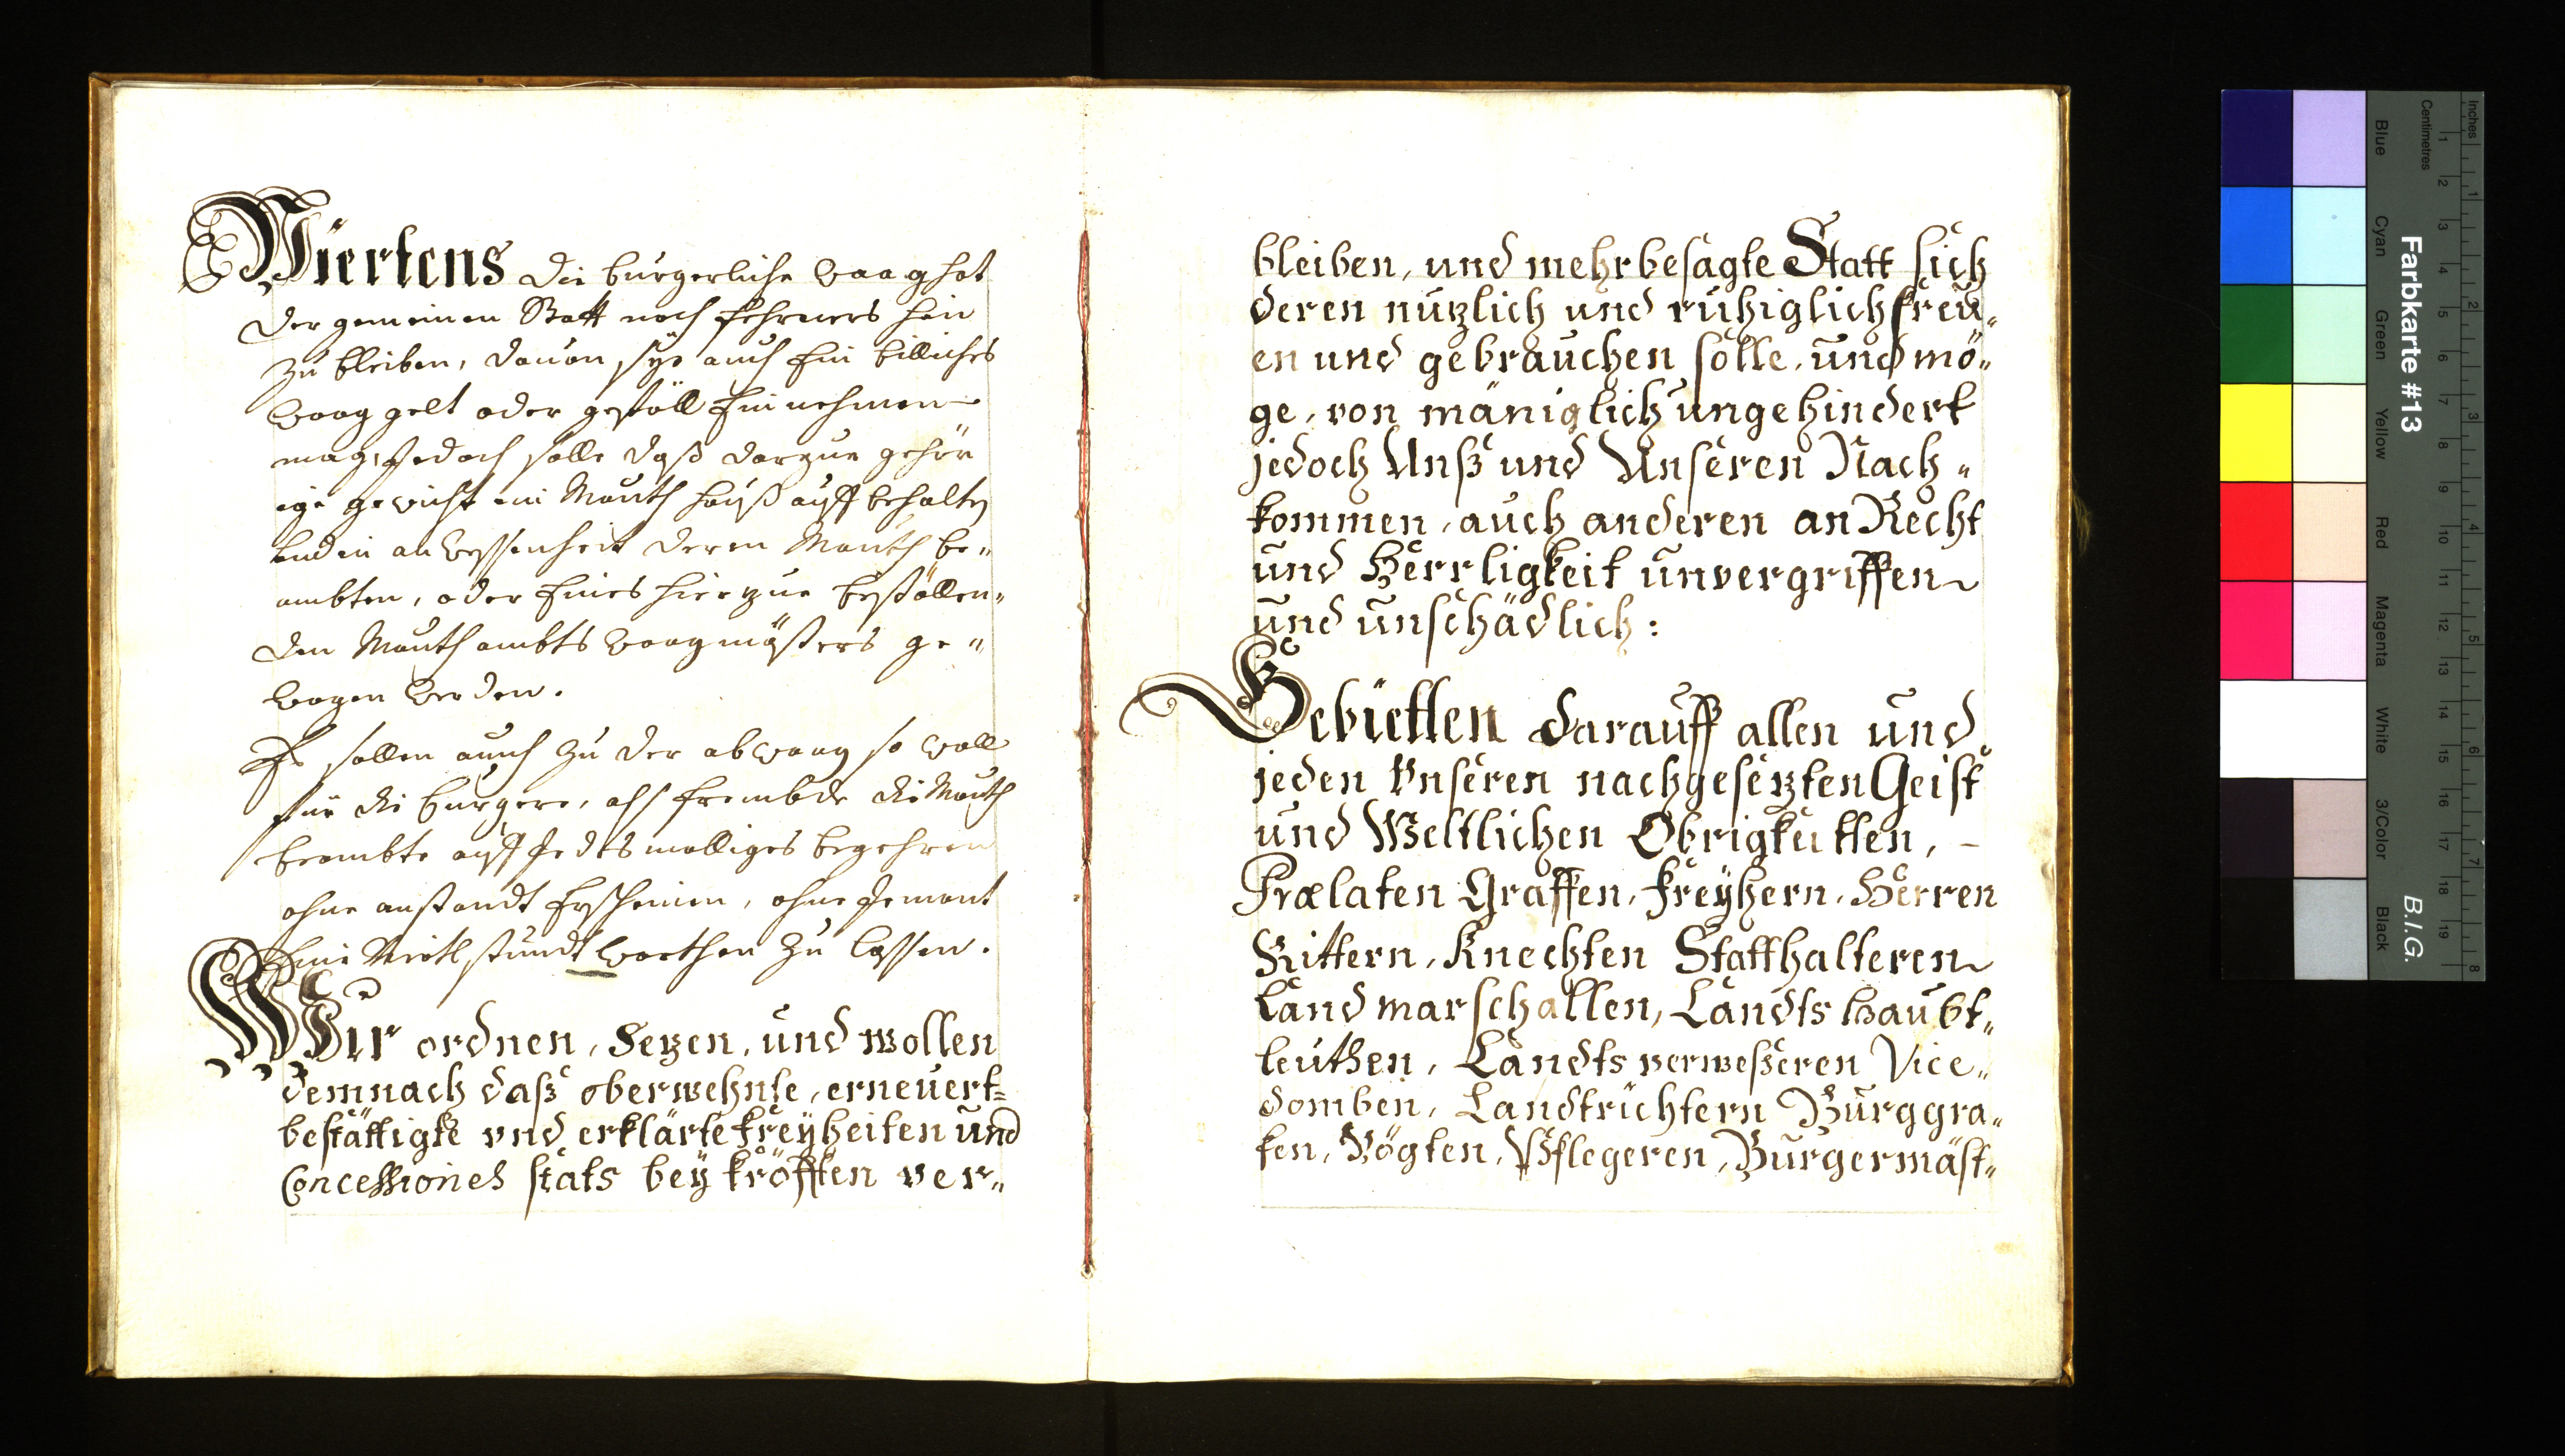 Viertens die burgerliche waag hat
der gemeinen Statt noch fehrners hin
zu bleiben, dauon sye auch Ein billiches
waag gelt oder geföll Einnehmen
mag, Jedoch solle daß darzue gehör
ige gewicht im Mauth hauß auff behalten
und in an weßenheit deren Mauth be„
ambten, oder Eines hierzue bestöllen„
den Mauth ambts waagmaisters ge„
wogen werden.
Es sollen auch zu der abwaag so woll
für die burgere, alß frembde die Mauth
beambte auff Jedesmalliges begehren
ohne anstandt Erscheinen, ohne Jemant
Eine Viertl stundt warthen zu lassen.
Wir ordnen, Sezen, und wollen
demnach daß oberwehnte, erneuert„
bestättigte vnd erklärte freyheiten und
Concessiones stäts bey kröfften ver„
bleiben, und mehrbesagte Statt sich
deren nuzlich und ruhiglich freü„
en und gebrauchen solle, und mö„
ge, von mäniglich ungehindert
jedoch Unß und Unseren Nach„
kommen, auch anderen an Recht
und Herrligkeit unvergriffen
und unschädlich:
Gebietten darauff allen und
jeden Vnseren nachgesezten Geist
und Weltlichen Obrigkeitten, –
Prælaten Graffen, freyhern, Herren
Rittern, Knechten Statthalteren
Landmarschallen, Landts haubt„
leuthen, Landts verweßeren Vice„
domben, Landtrichtern Burggra„
fen, Vögten, Pflegeren, Burgermäst„
Farbkarte #13
B.I.G.
Inches
Centimetres
Blue
Cyan
Green
Yellow
Red
Magenta
White
3/Color
Black
1 2 3 4 5 6 7 8 9 10 11 12 13 14 15 16 17 18 19
1 2 3 4 5 6 7 8